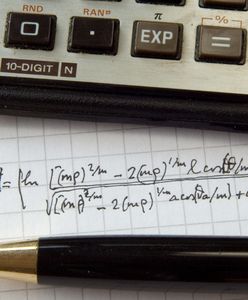 RND RAN# π %
0 . EXP =
10-DIGIT N
= ln [(mρ)^2/m - 2(mρ)^1/m l cos(θ/m
√[(mρ)^2/m - 2(mρ)^1/m a cos(θa/m) +